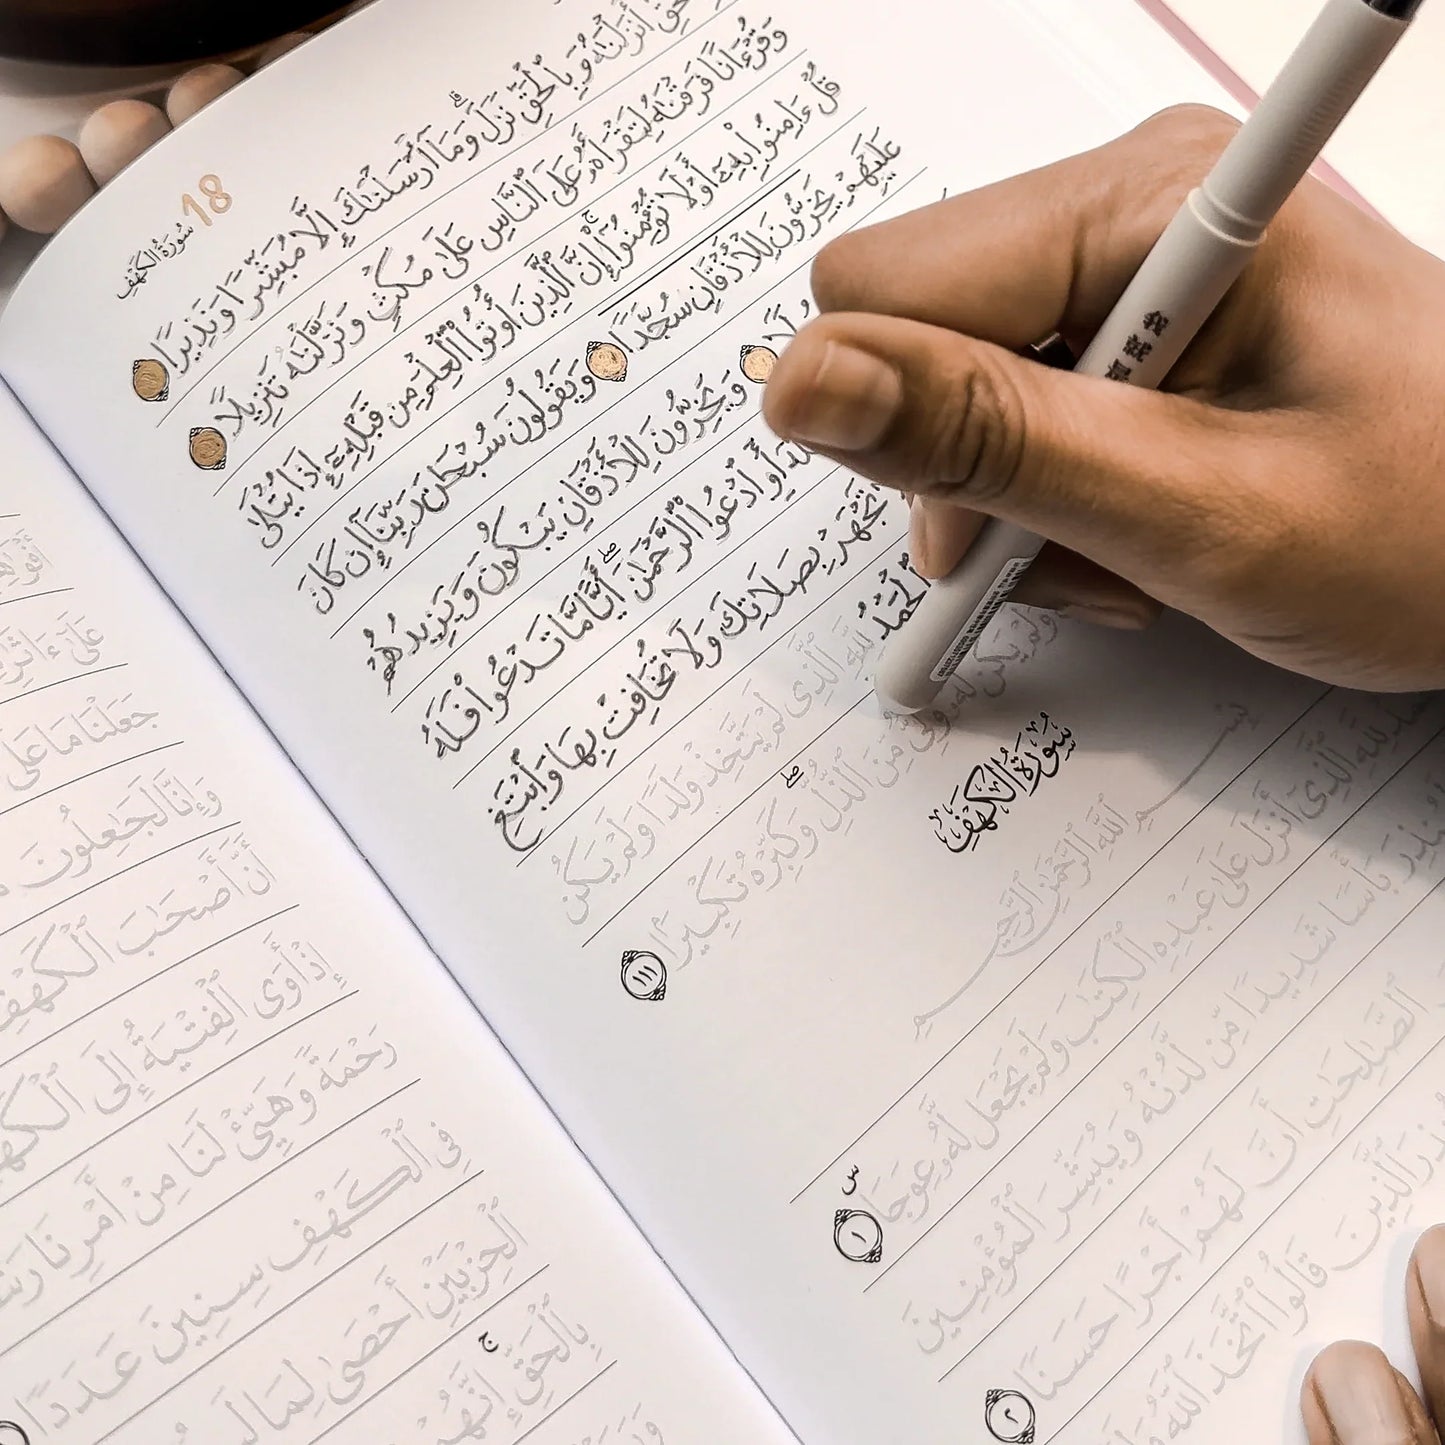 سُورَةُ الكَهْفِ 18
أَنزَلْنَٰهُ وَبِٱلْحَقِّ نَزَلَ ۗ وَمَآ أَرْسَلْنَٰكَ إِلَّا مُبَشِّرًا وَنَذِيرًا
وَقُرْءَانًا فَرَقْنَٰهُ لِتَقْرَأَهُۥ عَلَى ٱلنَّاسِ عَلَىٰ مُكْثٍ وَنَزَّلْنَٰهُ تَنزِيلًا
قُلْ ءَامِنُوا۟ بِهِۦٓ أَوْ لَا تُؤْمِنُوٓا۟ ۚ إِنَّ ٱلَّذِينَ أُوتُوا۟ ٱلْعِلْمَ مِن قَبْلِهِۦٓ إِذَا يُتْلَىٰ
عَلَيْهِمْ يَخِرُّونَ لِلْأَذْقَانِ سُجَّدًا وَيَقُولُونَ سُبْحَٰنَ رَبِّنَآ إِن كَانَ
وَيَخِرُّونَ لِلْأَذْقَانِ يَبْكُونَ وَيَزِيدُهُمْ
أَوِ ٱدْعُوا۟ ٱلرَّحْمَٰنَ ۖ أَيًّا مَّا تَدْعُوا۟ فَلَهُ
تَجْهَرْ بِصَلَاتِكَ وَلَا تُخَافِتْ بِهَا وَٱبْتَغِ
ٱلْحَمْدُ لِلَّهِ ٱلَّذِى لَمْ يَتَّخِذْ وَلَدًا وَلَمْ يَكُن
وَلَمْ يَكُن لَّهُۥ وَلِىٌّ مِّنَ ٱلذُّلِّ ۖ وَكَبِّرْهُ تَكْبِيرًا ١١١
سُورَةُ الكَهْفِ
بِسْمِ ٱللَّهِ ٱلرَّحْمَٰنِ ٱلرَّحِيمِ
لِلَّهِ ٱلَّذِىٓ أَنزَلَ عَلَىٰ عَبْدِهِ ٱلْكِتَٰبَ وَلَمْ يَجْعَل لَّهُۥ عِوَجَا ۜ ١
بَأْسًا شَدِيدًا مِّن لَّدُنْهُ وَيُبَشِّرَ ٱلْمُؤْمِنِينَ
ٱلصَّٰلِحَٰتِ أَنَّ لَهُمْ أَجْرًا حَسَنًا ٢
ٱلَّذِينَ قَالُوا۟ ٱتَّخَذَ ٱللَّهُ
عَلَىٰٓ ءَاثَٰرِ
جَعَلْنَا مَا عَلَى
وَإِنَّا لَجَٰعِلُونَ
أَنَّ أَصْحَٰبَ ٱلْكَهْفِ
إِذْ أَوَى ٱلْفِتْيَةُ إِلَى
رَحْمَةً وَهَيِّئْ لَنَا مِنْ أَمْرِنَا
فِى ٱلْكَهْفِ سِنِينَ عَدَدًا
ٱلْحِزْبَيْنِ أَحْصَىٰ لِمَا
بِٱلْحَقِّ ۚ إِنَّهُمْ
我就